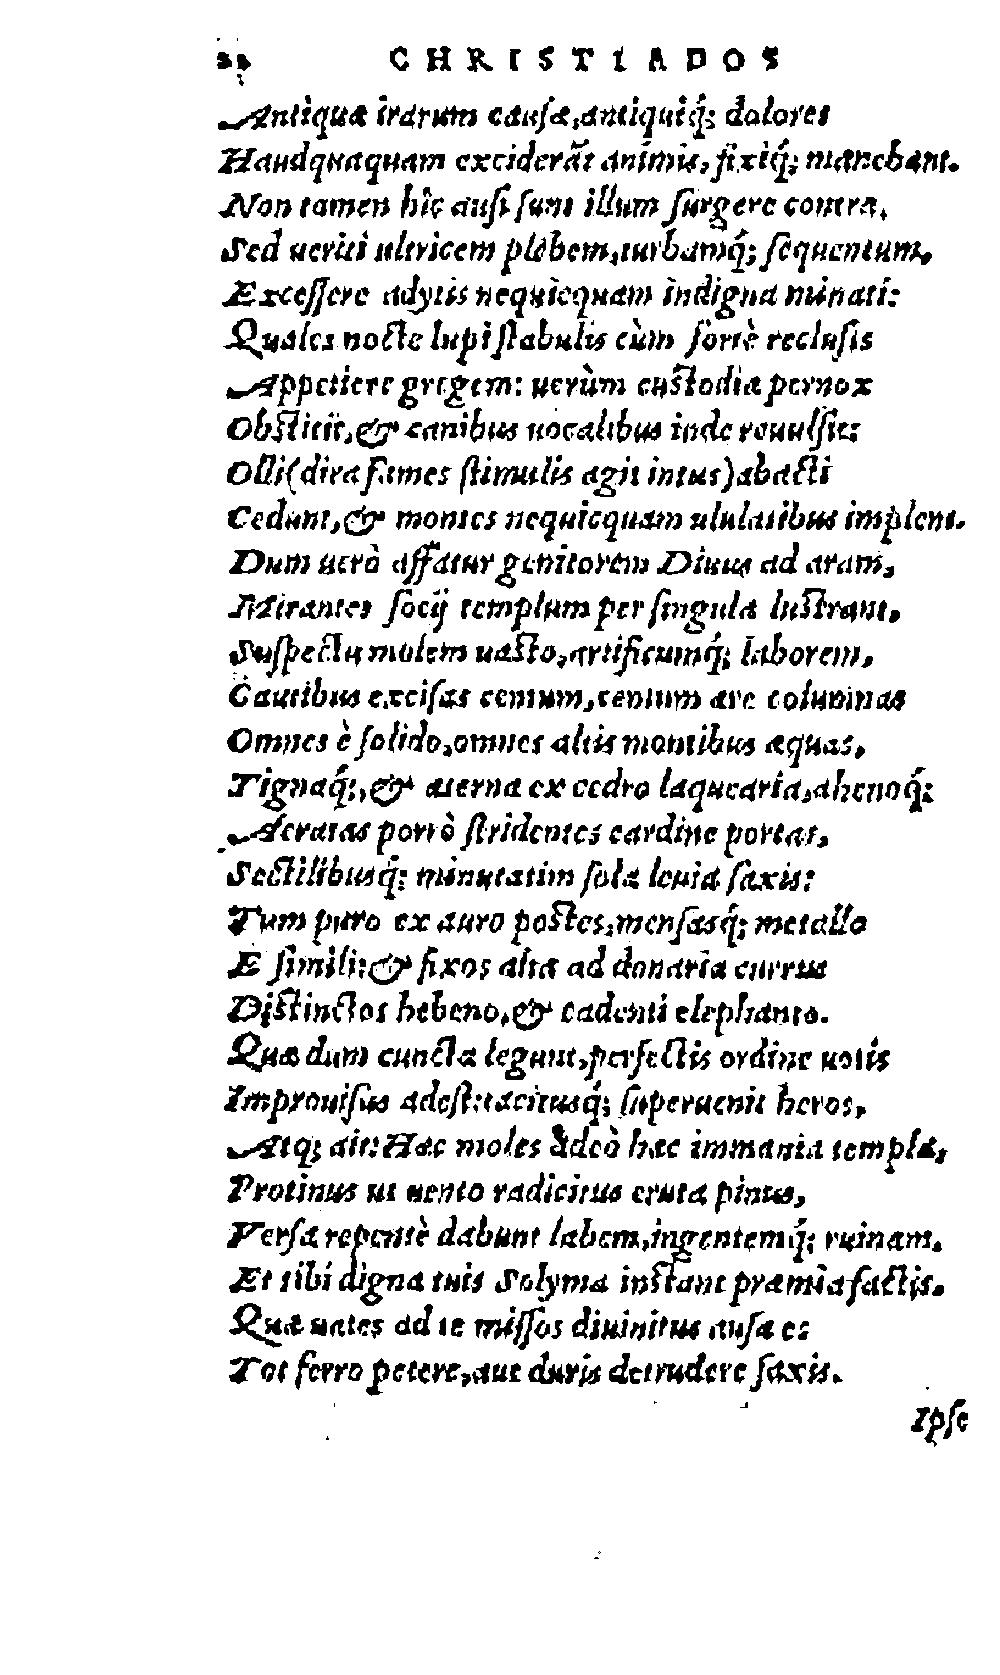 CHRISTIADOS
Antiquæ irarum causæ, antiquiq́; dolores
Haudquaquam exciderãt animis, fixiq́; manebant.
Non tamen hîc ausi sunt illum surgere contra,
Sed ueriti ultricem plebem, turbamq́; sequentum,
Excessere adytis nequicquam indigna minati:
Quales nocte lupi stabulis cùm fortè reclusis
Appetiere gregem: uerùm custodia pernox
Obstitit, & canibus uocalibus inde reuulsit:
Olli (dira fames stimulis agit intus) abacti
Cedunt, & montes nequicquam ululatibus implent.
Dum uerò affatur genitorem Diuus ad aram,
Mirantes socij templum per singula lustrant,
Suspectu molem uasto, artificumq́; laborem,
Cautibus excisas centum, centum ære columnas
Omnes è solido, omnes altis montibus æquas,
Tignaq́;, & æterna ex cedro laquearia, ahenoq́;
Aeratas porrò stridentes cardine portas,
Sectilibusq́; minutatim sola leuia saxis:
Tum puro ex auro postes, mensasq́; metallo
E simili: & fixos alta ad donaria currus
Distinctos hebeno, & cadenti elephanto.
Quæ dum cuncta legunt, perfectis ordine uotis
Improuisus adest: tacitusq́; superuenit heros,
Atq; ait: Hæc moles adeò hæc immania templa,
Protinus ut uento radicitus eruta pinus,
Versa repentè dabunt labem, ingentemq́; ruinam.
Et tibi digna tuis Solyma instant præmia factis.
Quæ uates ad te missos diuinitus ausa es
Tot ferro petere, aut duris detrudere saxis.
Ipse